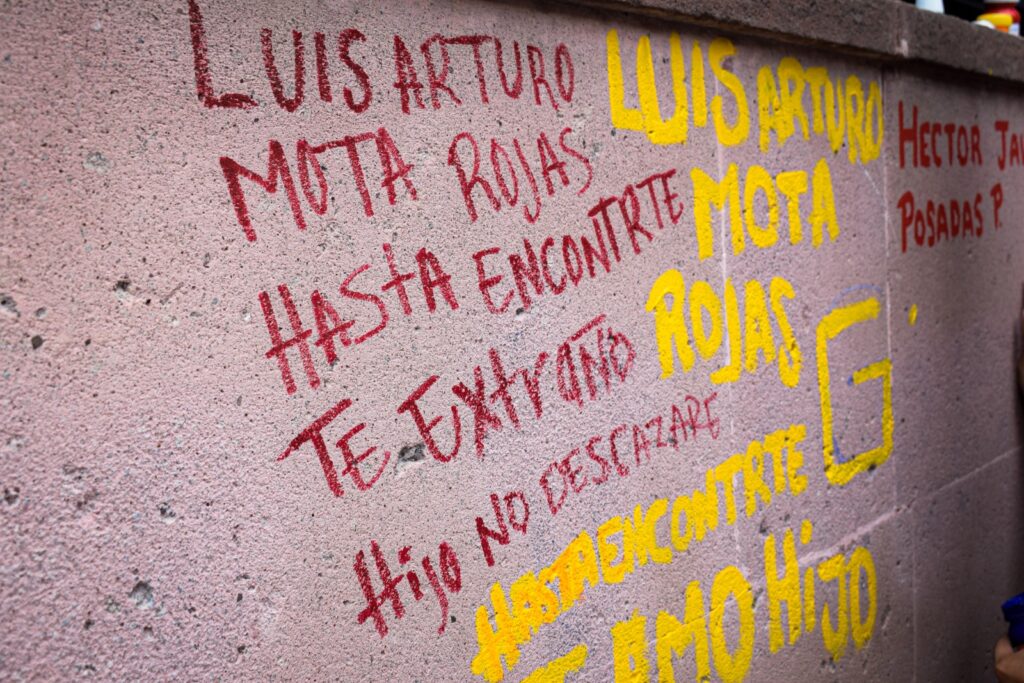 LUIS ARTURO
MOTA ROJAS
HASTA ENCONTRTE
TE EXTRAÑO
HIJO NO DESCAZARE
LUIS ARTURO
MOTA
ROJAS
G
HASTA ENCONTRTE
AMO HIJO
HECTOR JAV
POSADAS P.